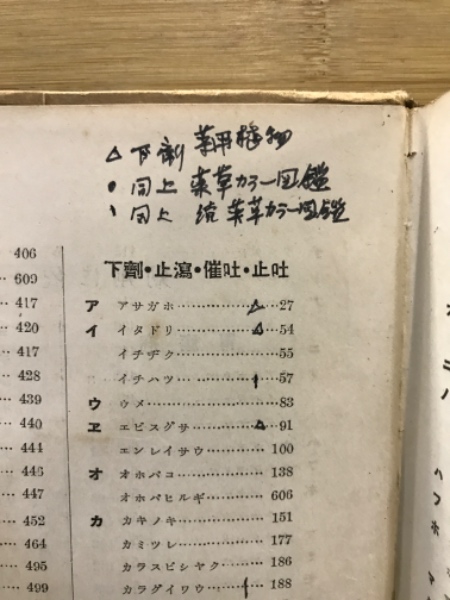 △ 下剤 薬用植物
● 同上 薬草カラー図鑑
ヽ 同上 続薬草カラー図鑑
406
609
417
420
417
428
439
440
444
446
447
452
464
495
499
下劑・止瀉・催吐・止吐
ア アサガホ……………△…27
イ イタドリ……………△…54
イチヂク…………………55
イチハツ…………………57
ウ ウメ………………………83
ヱ エビスグサ…………△…91
エンレイサウ…………100
オ オホバコ………………138
オホバヒルギ…………606
カ カキノキ………………151
カミツレ………………177
カラスビシヤク………186
カラダイワウ…………188
ハ
ハ
フ
ホ